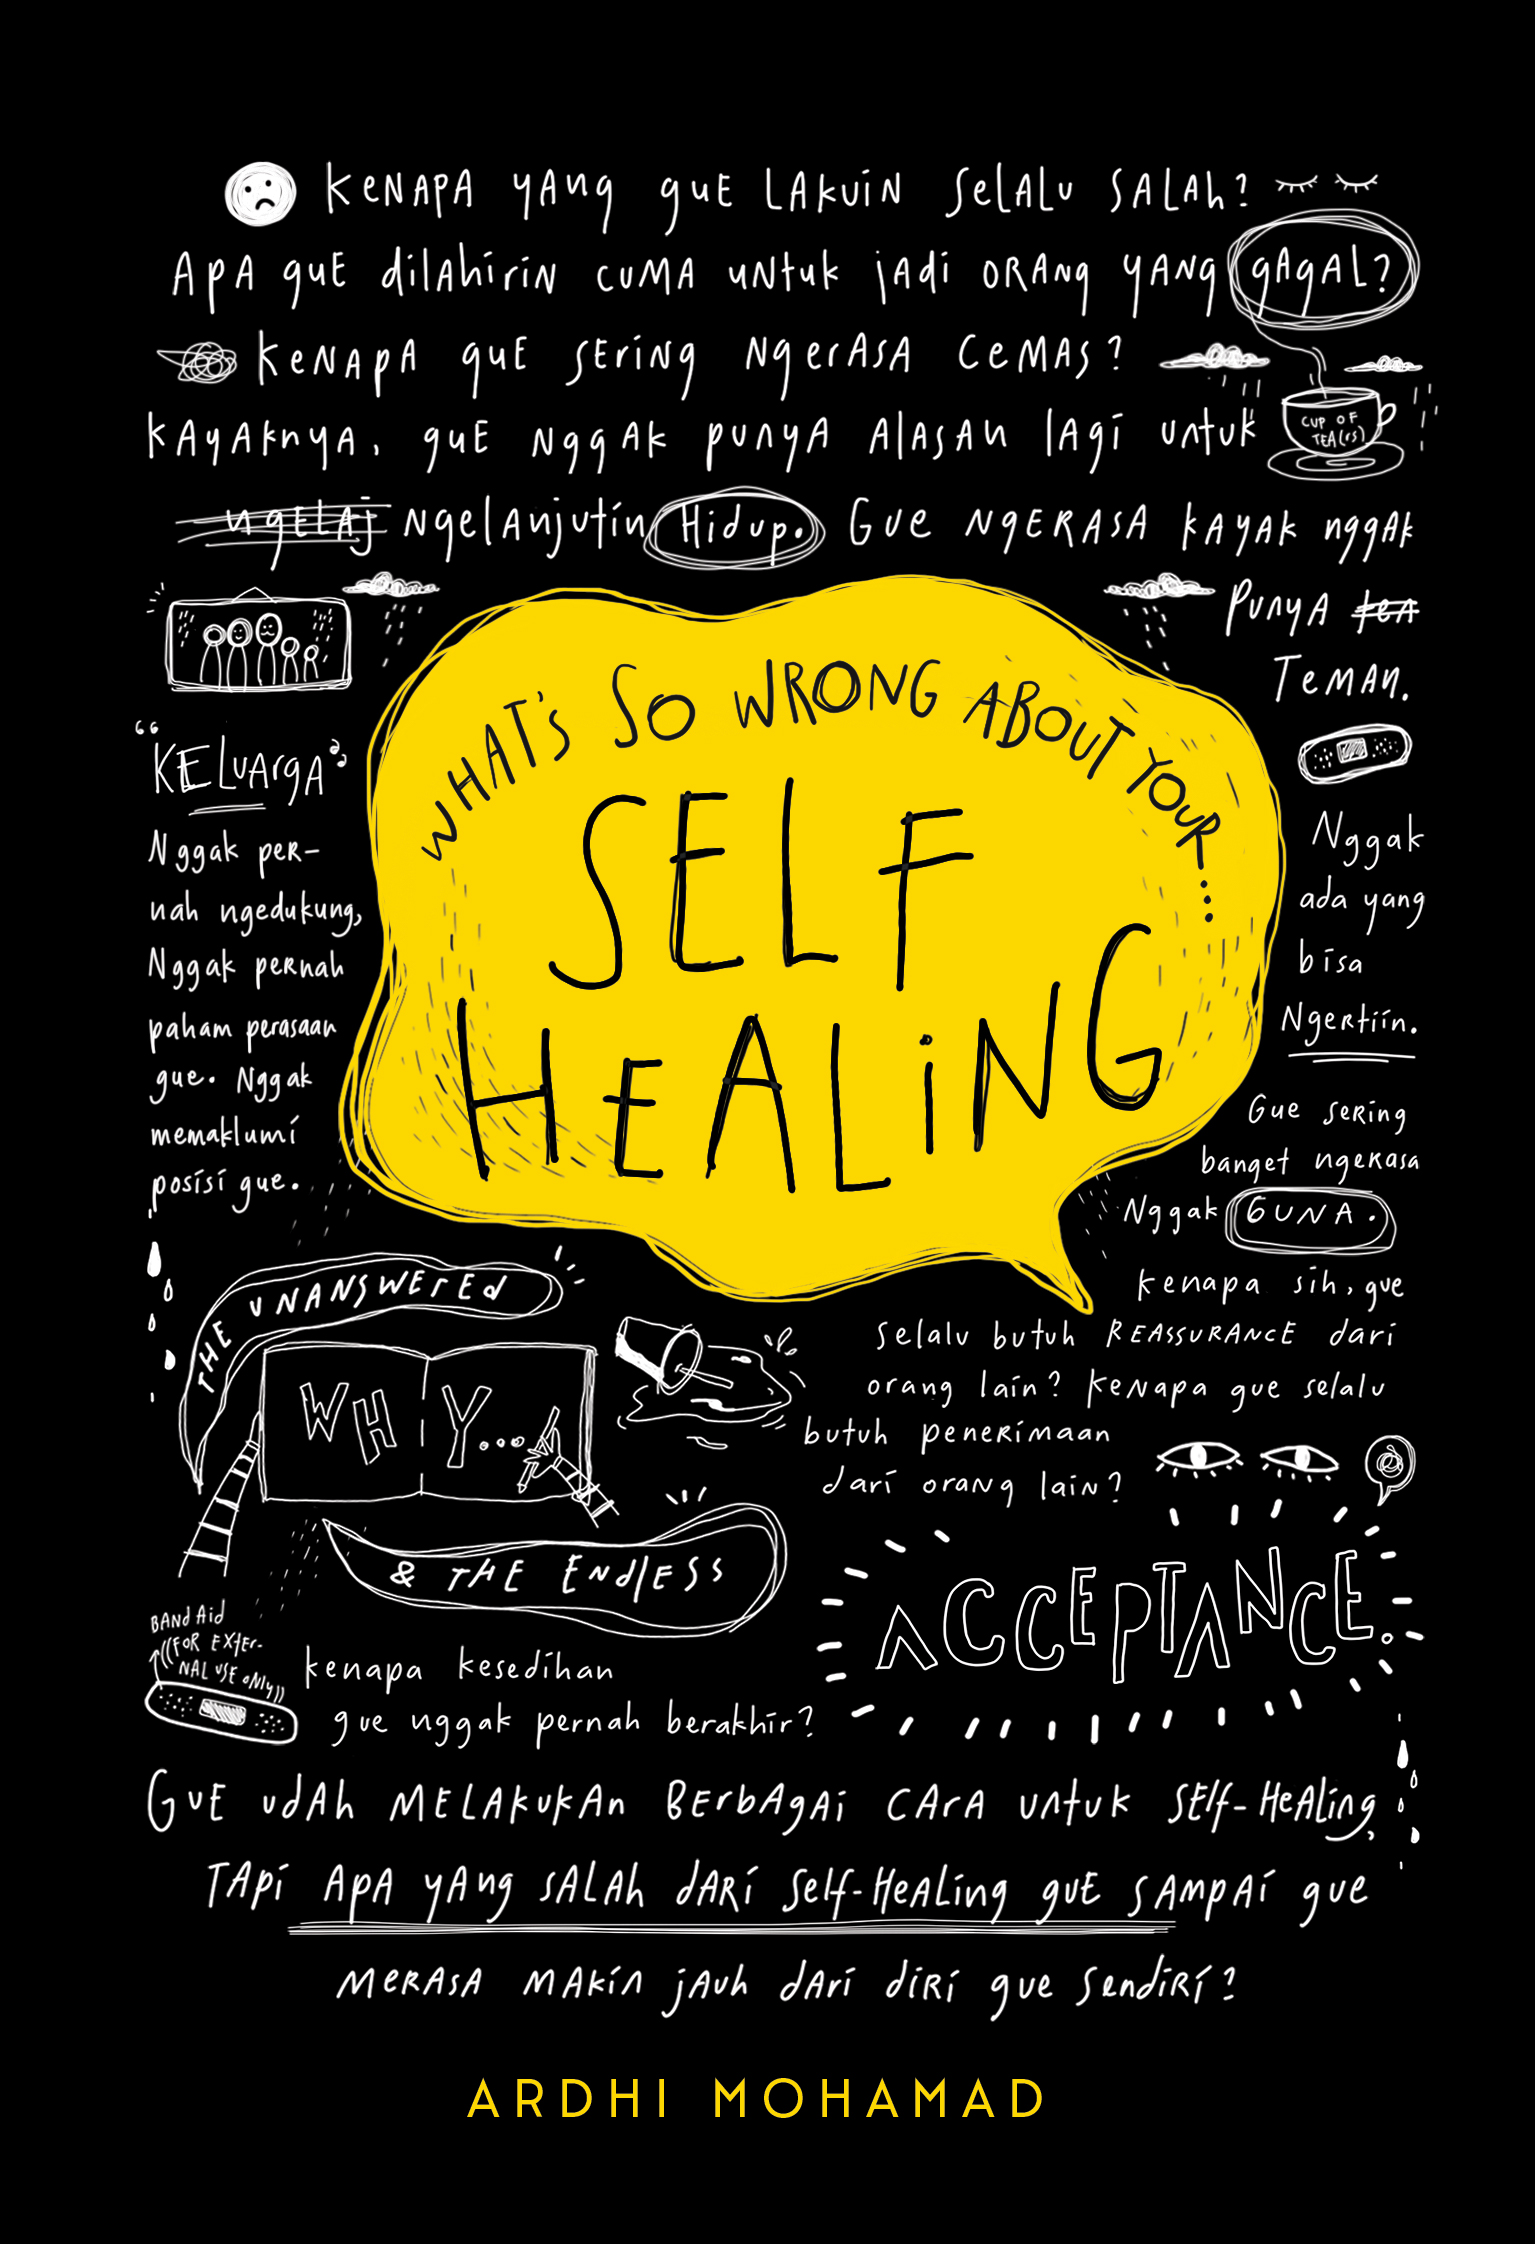 KENAPA YANG GUE LAKUIN SELALU SALAH?
APA GUE DILAHIRIN CUMA UNTUK JADI ORANG YANG GAGAL?
KENAPA GUE SERING NGERASA CEMAS?
KAYAKNYA, GUE NGGAK PUNYA ALASAN LAGI UNTUK
CUP OF
TEA(rs)
NGELAJ NGELANJUTIN HIDUP. GUE NGERASA KAYAK NGGAK
PUNYA TEA
TEMAN.
WHAT'S SO WRONG ABOUT YOUR...
SELF
HEALING
"KELUARGA"
Nggak per-
nah ngedukung,
Nggak pernah
paham perasaan
gue. Nggak
memaklumi
posisi gue.
Nggak
ada yang
bisa
Ngertiin.
Gue sering
banget ngerasa
Nggak GUNA.
kenapa sih, gue
selalu butuh REASSURANCE dari
orang lain? Kenapa gue selalu
butuh penerimaan
dari orang lain?
THE UNANSWERED
WHY...
& THE ENDLESS
ACCEPTANCE.
BAND AID
(FOR EXTER-
NAL USE ONLY)
kenapa kesedihan
gue nggak pernah berakhir?
GUE UDAH MELAKUKAN BERBAGAI CARA UNTUK SELF-HEALING,
TAPI APA YANG SALAH DARI SELF-HEALING GUE SAMPAI GUE
MERASA MAKIN JAUH DARI DIRI GUE SENDIRI?
ARDHI MOHAMAD